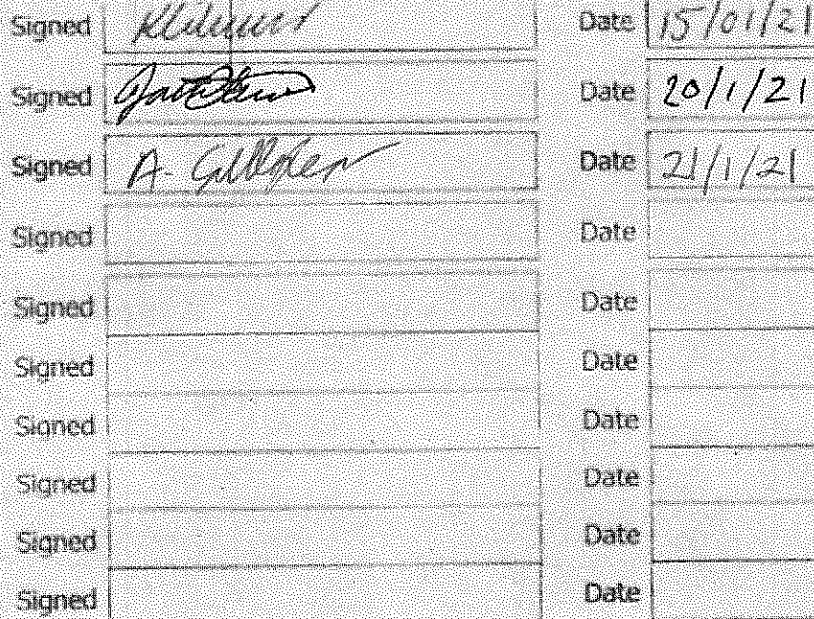 Signed Date 15/01/21
Signed Date 20/1/21
Signed A. Date 21/1/21
Signed Date
Signed Date
Signed Date
Signed Date
Signed Date
Signed Date
Signed Date